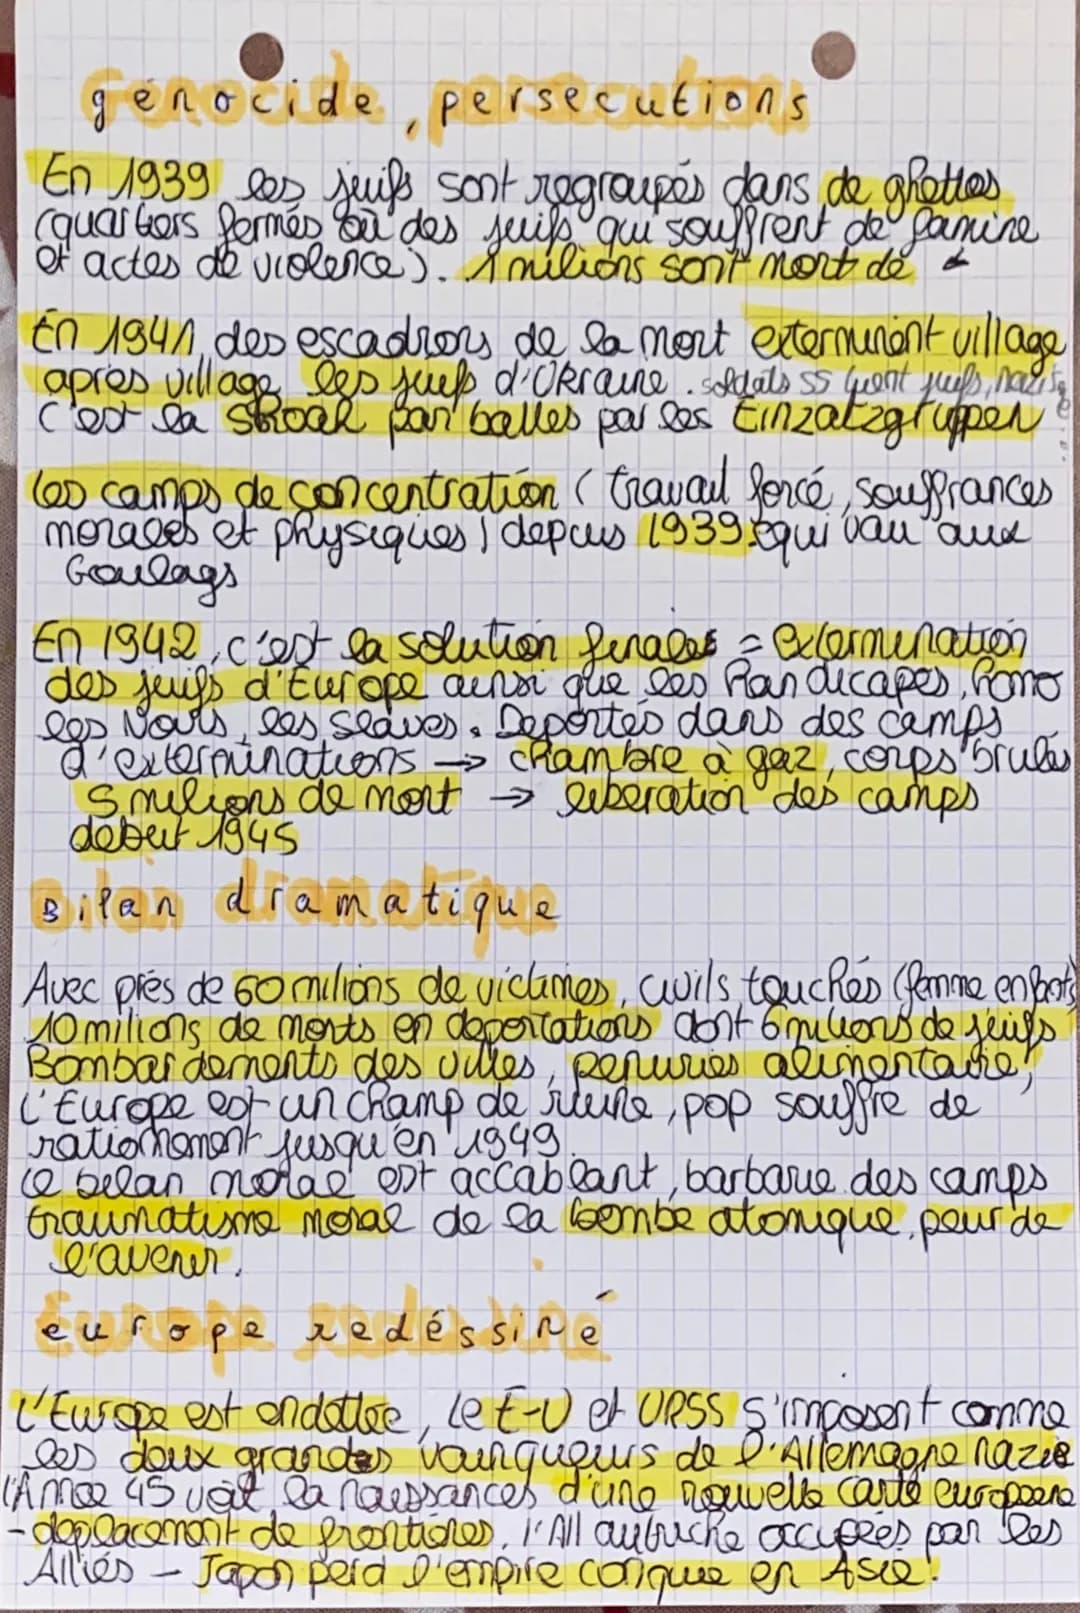 génocide, persecutions
En 1939 les juifs sont regroupés dans de ghettos
(quartiers fermés où des juifs qui souffrent de famine
et actes de violence). 1 milions sont mort de
En 1941, des escadrons de la mort exterminent village
apres village les juifs d'Ukraine. soldats SS tuent juifs, nazis
c'est la Shoah par balles par les Einzatzgruppen
les camps de concentration ( travail forcé, souffrances
morales et physiques ) depuis 1939 équi vau aux
Goulags
En 1942, c'est la solution finales = extermination
des juifs d'Europe ainsi que les handicapés, homo
les Noirs, les slaves. Déportés dans des camps
d'exterminations → chambre à gaz, corps brulés
5 milions de mort → liberation des camps
debut 1945
Bilan dramatique
Avec prés de 60 milions de victimes, civils touchés (femme enfants)
10 milions de morts en deportations dont 6 milions de juifs
Bombardements des villes, penuries alimentaire,
l'Europe est un champ de ruine, pop souffre de
rationnement jusqu'en 1949.
le bilan moral est accablant, barbarie des camps
traumatisme moral de la bombe atomique, peur de
l'avenir.
europe redéssiné
L'Europe est endettée, le E-U et URSS s'imposent comme
les deux grandes vainqueurs de l'Allemagne nazie
l'Année 45 voit la naissances d'une nouvelle carte européene
- deplacement de frontières, l'All autriche occupées par les
Alliés - Japon perd l'empire conquie en Asie.